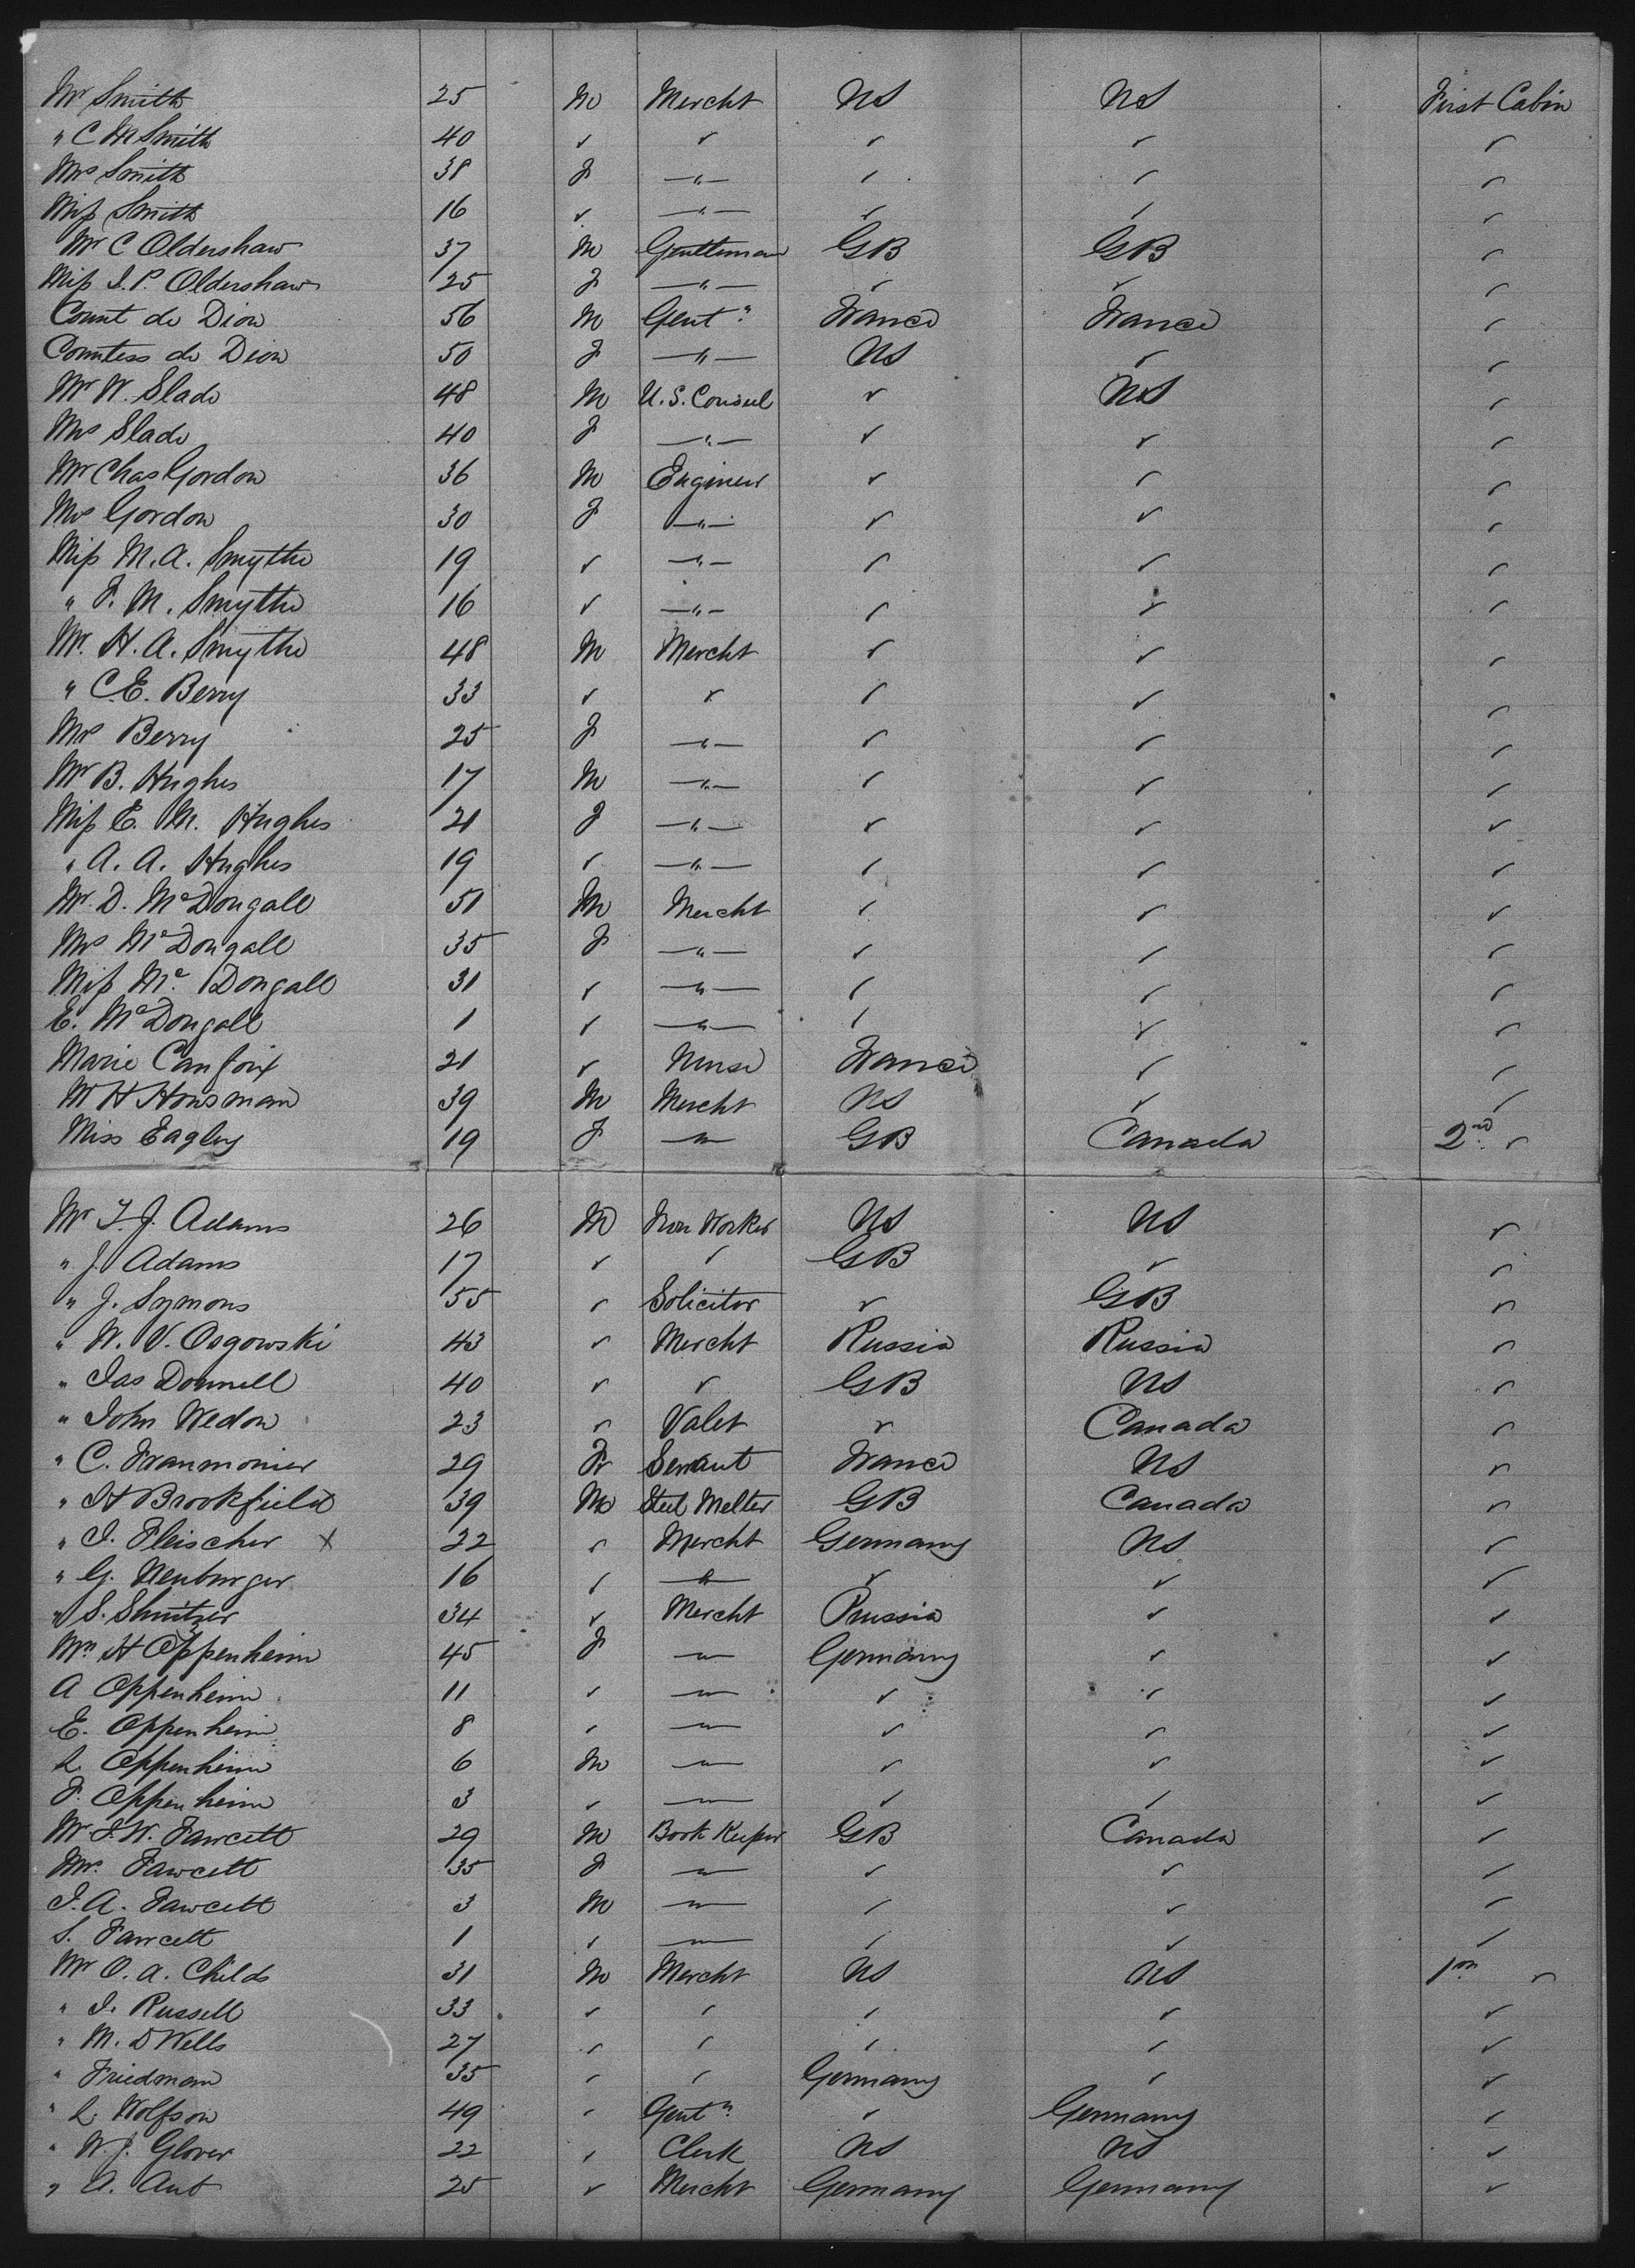 Mr Smith 25 M Mercht US US First Cabin
" C M Smith 40 ✓ ✓ ✓ ✓ ✓
Mrs Smith 38 F —"— ✓ ✓ ✓
Miss Smith 16 ✓ —"— ✓ ✓ ✓
Mr C Oldershaw 37 M Gentleman GB GB ✓
Miss I. P. Oldershaw 25 F —"— ✓ ✓ ✓
Count de Dion 56 M Gentn France France ✓
Comtess de Dion 50 F —"— US ✓ ✓
Mr W. Slade 48 M U.S. Consul ✓ US ✓
Mrs Slade 40 F —"— ✓ ✓ ✓
Mr Chas Gordon 36 M Engineer ✓ ✓ ✓
Mrs Gordon 30 F —"— ✓ ✓ ✓
Miss M. A. Smythe 19 ✓ —"— ✓ ✓ ✓
" F. M. Smythe 16 ✓ —"— ✓ ✓ ✓
Mr. H. A. Smythe 48 M Mercht ✓ ✓ ✓
" C. E. Berry 33 ✓ ✓ ✓ ✓ ✓
Mrs Berry 25 F —"— ✓ ✓ ✓
Mr B. Hughes 17 M —"— ✓ ✓ ✓
Miss E. M. Hughes 21 F —"— ✓ ✓ ✓
" A. A. Hughes 19 ✓ —"— ✓ ✓ ✓
Mr. D. McDongall 51 M Mercht ✓ ✓ ✓
Mrs McDongall 35 F —"— ✓ ✓ ✓
Miss Mc Dongall 31 ✓ —"— ✓ ✓ ✓
E. McDongall 1 ✓ —"— ✓ ✓ ✓
Marie 21 ✓ Nurse France ✓ ✓
W H Housman 39 M Mercht US ✓ ✓
Miss Eagley 19 F —"— GB Canada 2nd ✓
Mr T. J. Adams 26 M Iron Worker US US ✓
" J. Adams 17 ✓ ✓ GB ✓ ✓
" J. Symons 55 ✓ Solicitor ✓ GB ✓
" W. V. Osgowski 43 ✓ Mercht Russia Russia ✓
" Jas Donnell 40 ✓ ✓ GB US ✓
" John Wedon 23 ✓ Valet ✓ Canada ✓
" C. Franmonier 29 F Servant France US ✓
" H Brookfield 39 M Steel Melter GB Canada ✓
" I. Fleischer x 22 ✓ Mercht Germany US ✓
" G. Neuburger 16 ✓ —"— ✓ ✓ ✓
" S. Shnitzer 34 ✓ Mercht Prussia ✓ ✓
Mrs H Oppenheim 45 F —"— Germany ✓ ✓
A Oppenheim 11 ✓ —"— ✓ ✓ ✓
E. Oppenheim 8 ✓ —"— ✓ ✓ ✓
L. Oppenheim 6 M —"— ✓ ✓ ✓
F. Oppenheim 3 ✓ —"— ✓ ✓ ✓
Mr I. W. Fawcett 29 M Book Keeper GB Canada ✓
Mrs. Fawcett 35 F —"— ✓ ✓ ✓
I. A. Fawcett 3 M —"— ✓ ✓ ✓
S. Fawcett 1 ✓ —"— ✓ ✓ ✓
Mr O. A. Childs 31 M Mercht US US 1st ✓
" I. Russell 33 ✓ ✓ ✓ ✓ ✓
" M. D Wells 27 ✓ ✓ ✓ ✓ ✓
" Friedman 35 ✓ ✓ Germany ✓ ✓
" L. Wolfson 49 ✓ Gentn ✓ Germany ✓
" W. J. Glover 22 ✓ Clerk US US ✓
" A. Aub 25 ✓ Mercht Germany Germany ✓